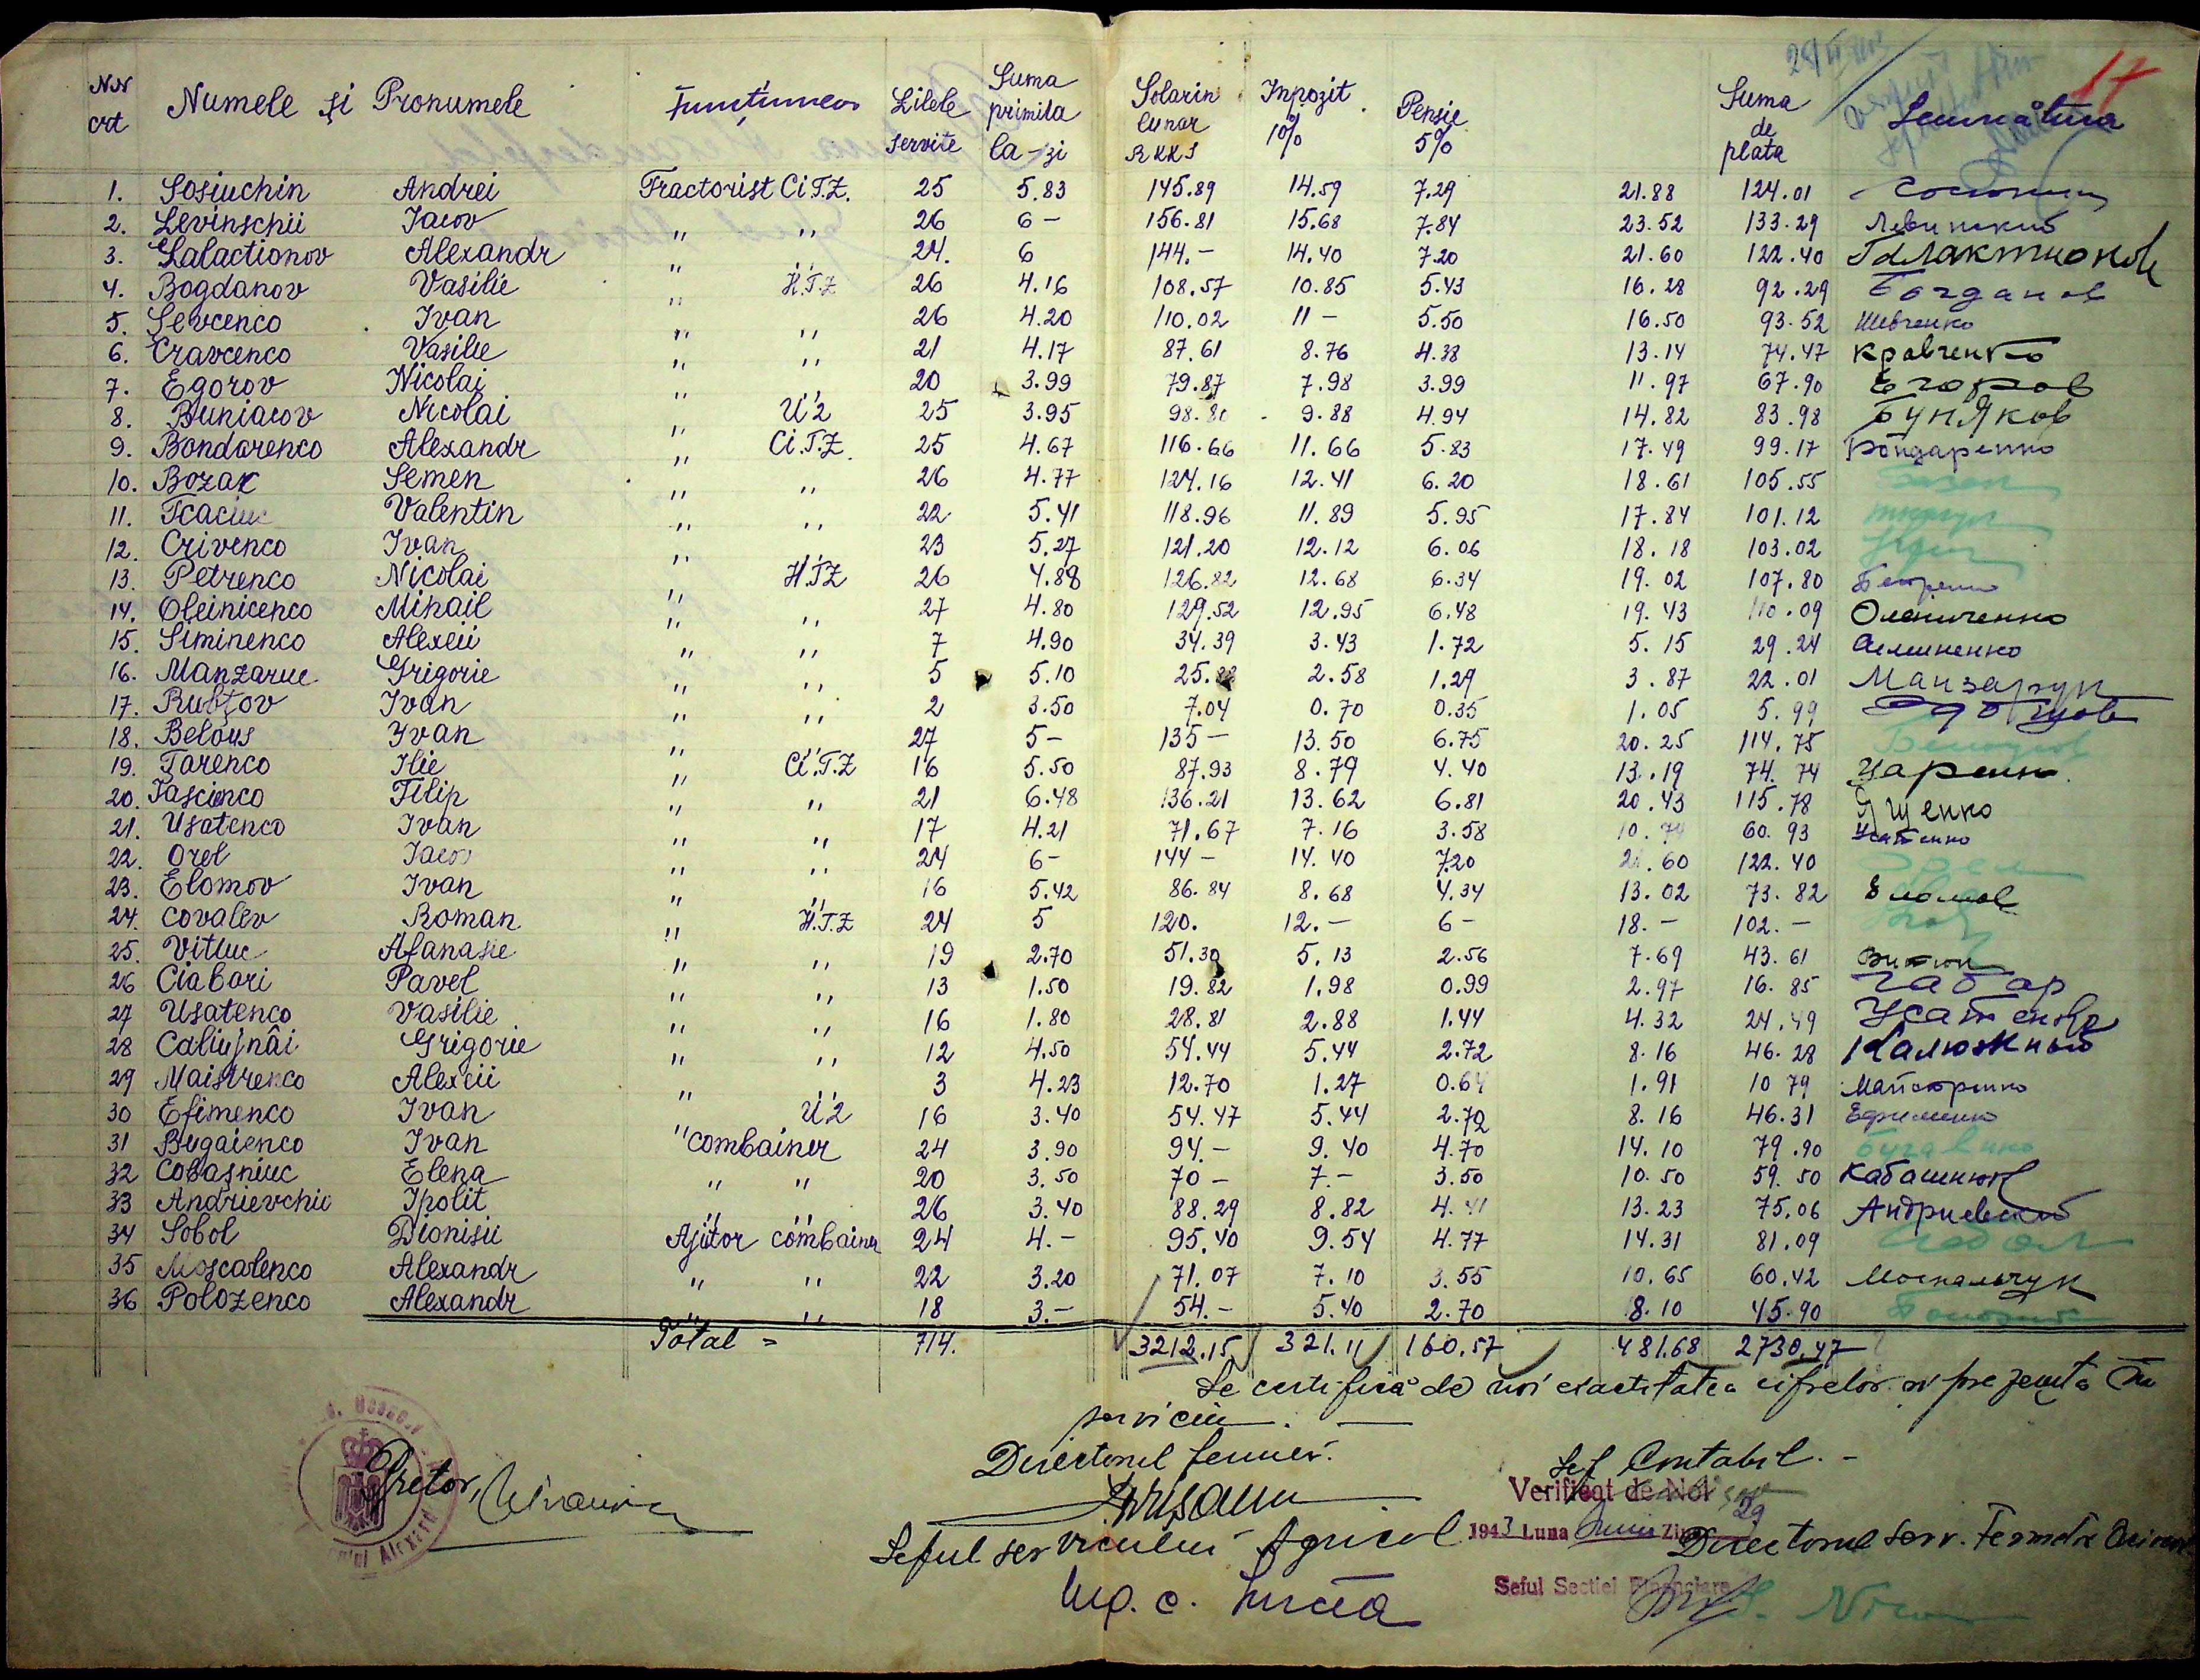 17
NN crt Numele și Pronumele Funcțiunea Zilele servite Suma primita la-zi Solariu lunar RKKS Inpozit 10% Pensie 5% Suma de plata Semnătura
1. Sosiuchin Andrei Tractorist Ci T.Z. 25 5.83 145.89 14.59 7.29 21.88 124.01
2. Levinschii Iacov " " 26 6 — 156.81 15.68 7.84 23.52 133.29 Левинский
3. Galactionov Alexandr " " 24. 6 144.— 14.40 7.20 21.60 122.40 Галактионов
4. Bogdanov Vasilie " H.T.Z 26 4.16 108.57 10.85 5.43 16.28 92.29 Богданов
5. Șevcenco Ivan " " 26 4.20 110.02 11 — 5.50 16.50 93.52 Шевченко
6. Cravcenco Vasilie " " 21 4.17 87.61 8.76 4.38 13.14 74.47 Кравченко
7. Egorov Nicolai " " 20 3.99 79.87 7.98 3.99 11.97 67.90 Егоров
8. Buniacov Nicolai " U2 25 3.95 98.80 9.88 4.94 14.82 83.98 Буняков
9. Bondarenco Alexandr " Ci.T.Z. 25 4.67 116.66 11.66 5.83 17.49 99.17 Бондаренко
10. Bozax Semen " " 26 4.77 124.16 12.41 6.20 18.61 105.55
11. Tcaciuc Valentin " " 22 5.41 118.96 11.89 5.95 17.84 101.12
12. Crivenco Ivan " " 23 5.27 121.20 12.12 6.06 18.18 103.02
13. Petrenco Nicolai " H.T.Z 26 4.88 126.82 12.68 6.34 19.02 107.80
14. Oleinicenco Mihail " " 27 4.80 129.52 12.95 6.48 19.43 110.09 Олениченко
15. Siminenco Alexeii " " 7 4.90 34.39 3.43 1.72 5.15 29.24 Симиненко
16. Manzaruc Grigorie " " 5 5.10 25. 2.58 1.29 3.87 22.01 Манзарук
17. Rubțov Ivan " " 2 3.50 7.04 0.70 0.35 1.05 5.99
18. Belous Ivan " " 27 5 — 135 — 13.50 6.75 20.25 114.75
19. Țarenco Ilie " Ci.T.Z 16 5.50 87.93 8.79 4.40 13.19 74.74 Царенко
20. Iascienco Filip " " 21 6.48 136.21 13.62 6.81 20.43 115.78 Ященко
21. Usatenco Ivan " " 17 4.21 71.67 7.16 3.58 10.74 60.93 Усатенко
22. Orel Iacov " " 24 6 — 144 — 14.40 7.20 21.60 122.40 Орел
23. Elomov Ivan " " 16 5.42 86.84 8.68 4.34 13.02 73.82 Еломов
24. Covalev Roman " H.T.Z 24 5 120. 12.— 6 — 18.— 102.—
25. Vitiuc Afanasie " " 19 2.70 51.30 5.13 2.56 7.69 43.61 Витюк
26 Ciabari Pavel " " 13 1.50 19.82 1.98 0.99 2.97 16.85 Чабар
27 Usatenco Vasilie " " 16 1.80 28.81 2.88 1.44 4.32 24.49 Усатенко
28 Caliujnâi Grigorie " " 12 4.50 54.44 5.44 2.72 8.16 46.28 Калюжный
29 Maistrenco Alexeii " 3 4.23 12.70 1.27 0.64 1.91 10 79 Майстренко
30 Efimenco Ivan U2 16 3.40 54.47 5.44 2.72 8.16 46.31 Ефименко
31 Bugaienco Ivan " combainer 24 3.90 94.— 9.40 4.70 14.10 79.90
32 Cobașniuc Elena " " 20 3.50 70 — 7.— 3.50 10.50 59.50 Кабашнюк
33 Andrievchii Ipolit " " 26 3.40 88.29 8.82 4.41 13.23 75.06 Андриевский
34 Sobol Dionisii Ajutor combainer 24 4.— 95.40 9.54 4.77 14.31 81.09
35 Moscalenco Alexandr " " 22 3.20 71.07 7.10 3.55 10.65 60.42 Москальчук
36 Polozenco Alexandr " " 18 3.— 54.— 5.40 2.70 8.10 45.90
Total = 714. 3212.15 321.11 160.57 481.68 2730.47
Se certifică de noi exactitatea cifrelor și prezența în
serviciu.
Directorul fermei.
Șef Contabil.—
Pretor,
Verificat de Noi
1943 Luna Iunie Ziua 29
Șeful serviciului Agricol
Directorul Serv. Fermelor
Seful Sectiei Financiare
Ing. C.